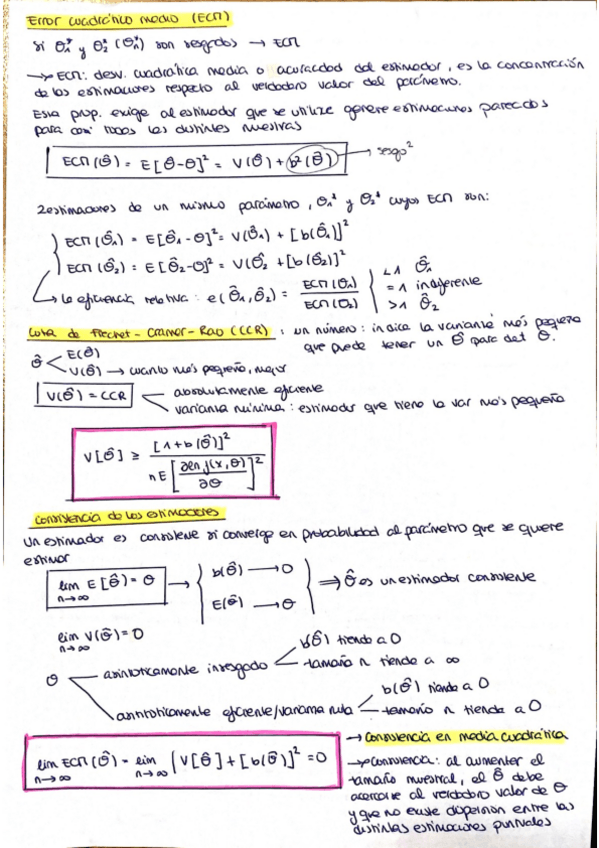 Error cuadrático medio (ECM)
Si θ₁* y θ₂* (θₙ*) son sesgados → ECM
→ ECM: desv. cuadrática media o acuracidad del estimador, es la concentración
de los estimadores respecto al verdadero valor del parámetro.
Esta prop. exige al estimador que se utilice genere estimaciones parecidas
para casi todas las distintas muestras
ECM(θ̂) = E[θ̂-θ]² = V(θ̂) + b²(θ̂) → sesgo²
2 estimadores de un mismo parámetro, θ₁* y θ₂* cuyos ECM son:
ECM(θ̂₁) = E[θ̂₁-θ]² = V(θ̂₁) + [b(θ̂₁)]²
ECM(θ̂₂) = E[θ̂₂-θ]² = V(θ̂₂ + [b(θ̂₂)]²
↳ la eficiencia relativa: e(θ̂₁,θ̂₂) = ECM(θ₁) / ECM(θ₂) { <1 θ̂₁
=1 indiferente
>1 θ̂₂
Cota de Frechet-Cramer-Rao (CCR) : un número: indica la variante más pequeña
que puede tener un θ̂ para det θ.
θ̂ < E(θ̂)
V(θ̂) → cuanto más pequeño, mejor
V(θ̂) = CCR < absolutamente eficiente
varianza mínima: estimador que tiene la var más pequeña
V[θ̂] ≥ [1+b(θ̂)]² / nE[∂ln f(x,θ) / ∂θ]²
Consistencia de los estimadores
Un estimador es consistente si converge en probabilidad al parámetro que se quiere
estimar
lim n→∞ E[θ̂] = θ → { b(θ̂) → 0
E(θ̂) → θ } ⇒ θ̂ es un estimador consistente
lim n→∞ V(θ̂) = 0
θ asintóticamente insesgado < b(θ̂) tiende a 0
tamaño n tiende a ∞
asintóticamente eficiente/varianza nula < b(θ̂) tiende a 0
tamaño n tiende a 0
lim n→∞ ECM(θ̂) = lim n→∞ (V[θ̂] + [b(θ̂)]² = 0
→ Consistencia en media cuadrática
→ Consistencia: al aumentar el
tamaño muestral, el θ̂ debe
acercarse al verdadero valor de θ
y que no existe dispersión entre las
distintas estimaciones puntuales